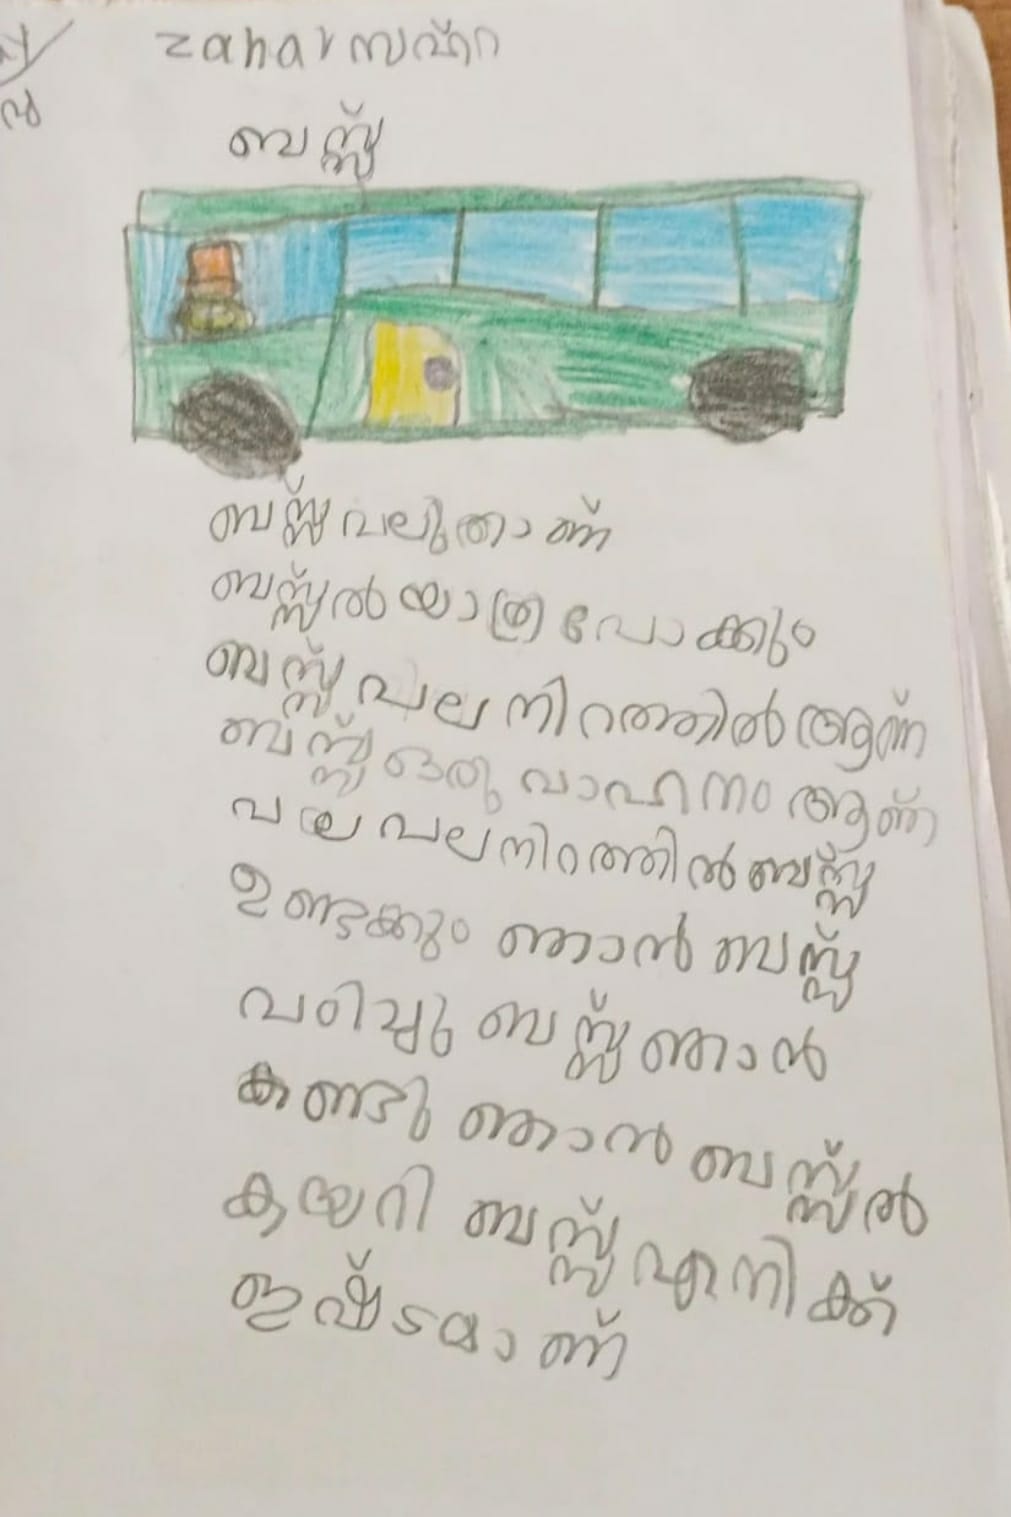 zahar സഹറ
ബസ്സ്
ബസ്സ് വലുതാണ്
ബസ്സ്ൽ യാത്ര പോക്കും
ബസ്സ് പല നിറത്തിൽ ആണ്
ബസ്സ് ഒരു വാഹനം ആണ്
പല പല നിറത്തിൽ ബസ്സ്
ഉണ്ടക്കും ഞാൻ ബസ്സ്
വരിച്ചു ബസ്സ് ഞാൻ
കണ്ടു ഞാൻ ബസ്സ്ൽ
കയറി ബസ്സ് എനിക്ക്
ഇഷ്ടമാണ്